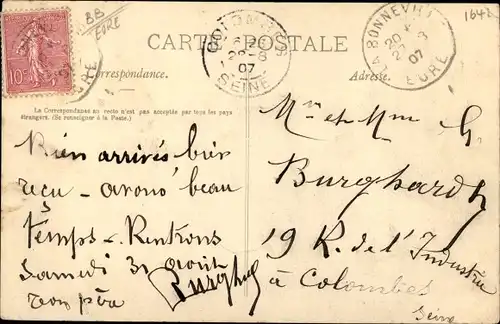 BB
EURE
1642
10c
EURE
COLOMBES
28-8
07
SEINE
LA BONNEVILLE
20
27 8
07
EURE
CARTE POSTALE
Correspondance.
Adresse.
La Correspondance au recto n'est pas acceptée par tous les pays
étrangers. (Se renseigner à la Poste.)
Bien arrivés bien
reçu - avons beau
temps - Rentrons
Samedi 31 août
ton père
Burghard
Mr et Mme G.
Burghardt
19 R. de l'Industrie
à Colombes
Seine